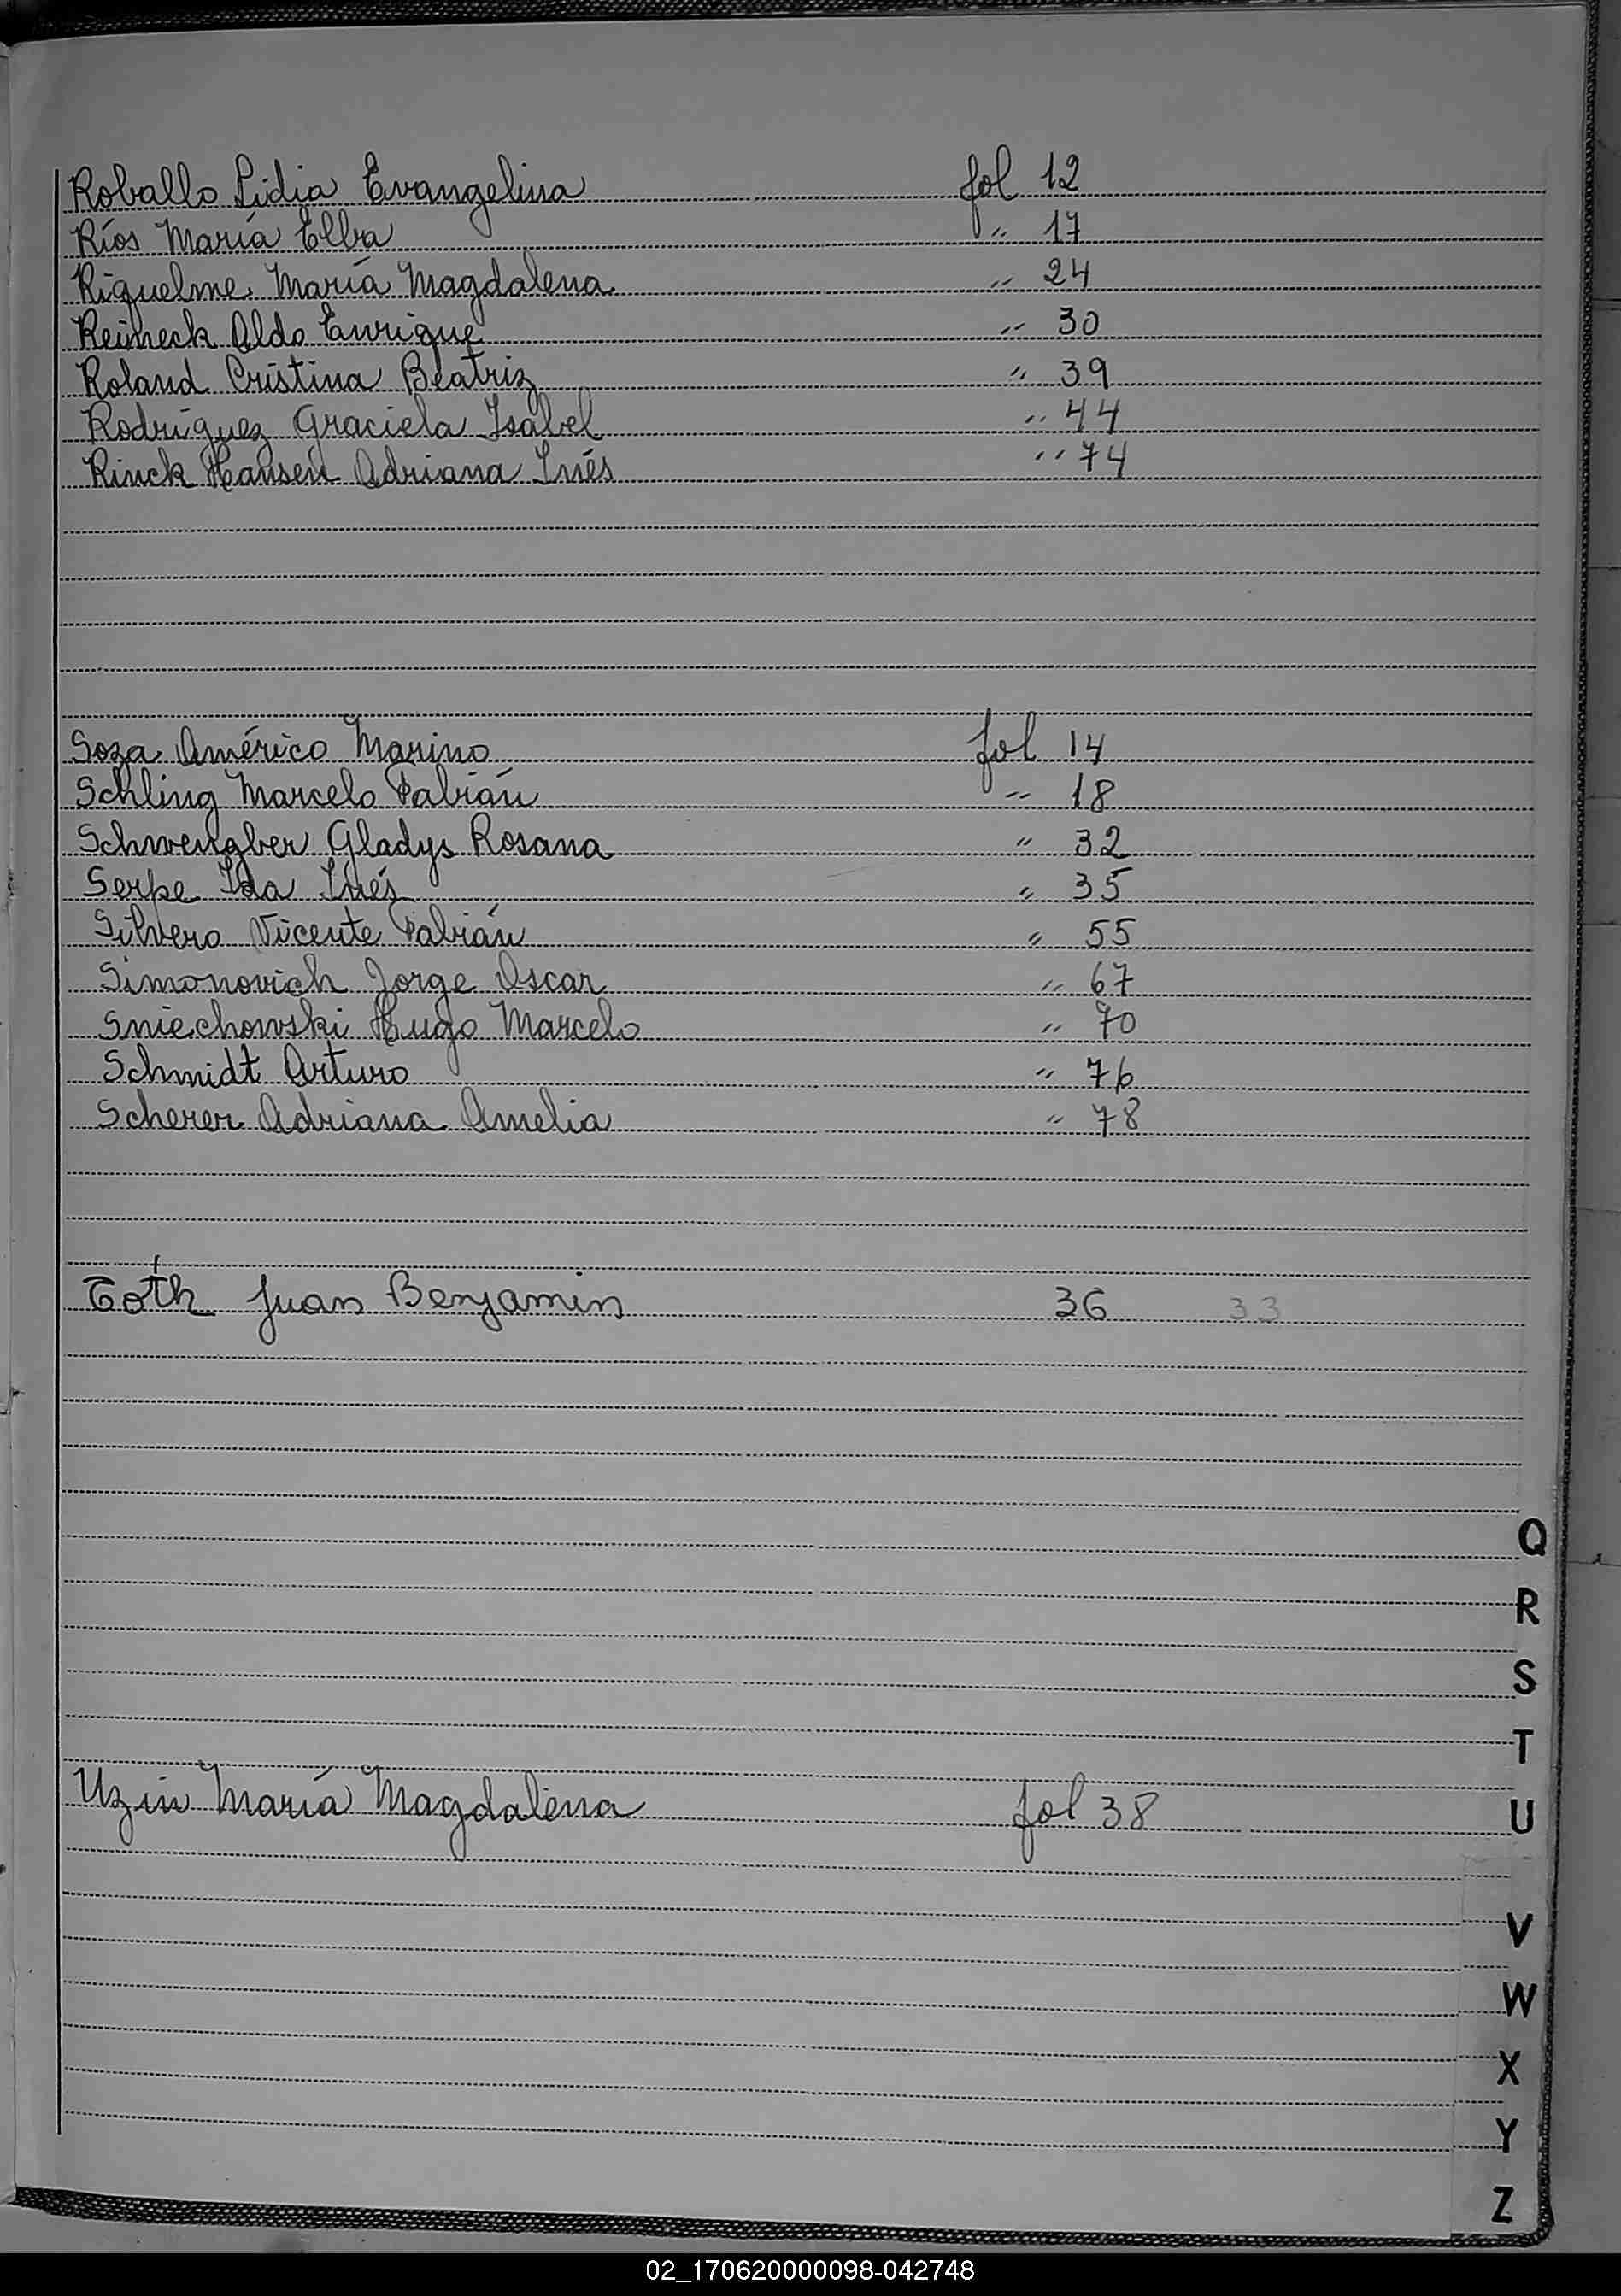 Roballo Lidia Evangelina fol 12
Ríos María Elba " 17
Riquelme María Magdalena " 24
Reineck Aldo Enrique " 30
Roland Cristina Beatriz " 39
Rodríguez Graciela Isabel " 44
Rinck Hansen Adriana Inés " 74
Soza Américo Marino fol 14
Schling Marcelo Fabián " 18
Schwengber Gladys Rosana " 32
Serpe Ida Inés " 35
Silvero Vicente Fabián " 55
Simonovich Jorge Oscar " 67
Sniechowski Hugo Marcelo " 70
Schmidt Arturo " 76
Scherer Adriana Amelia " 78
Toth Juan Benjamin 36 33
Q
R
S
T
Uzin María Magdalena fol 38
U
V
W
X
Y
Z
02_170620000098-042748